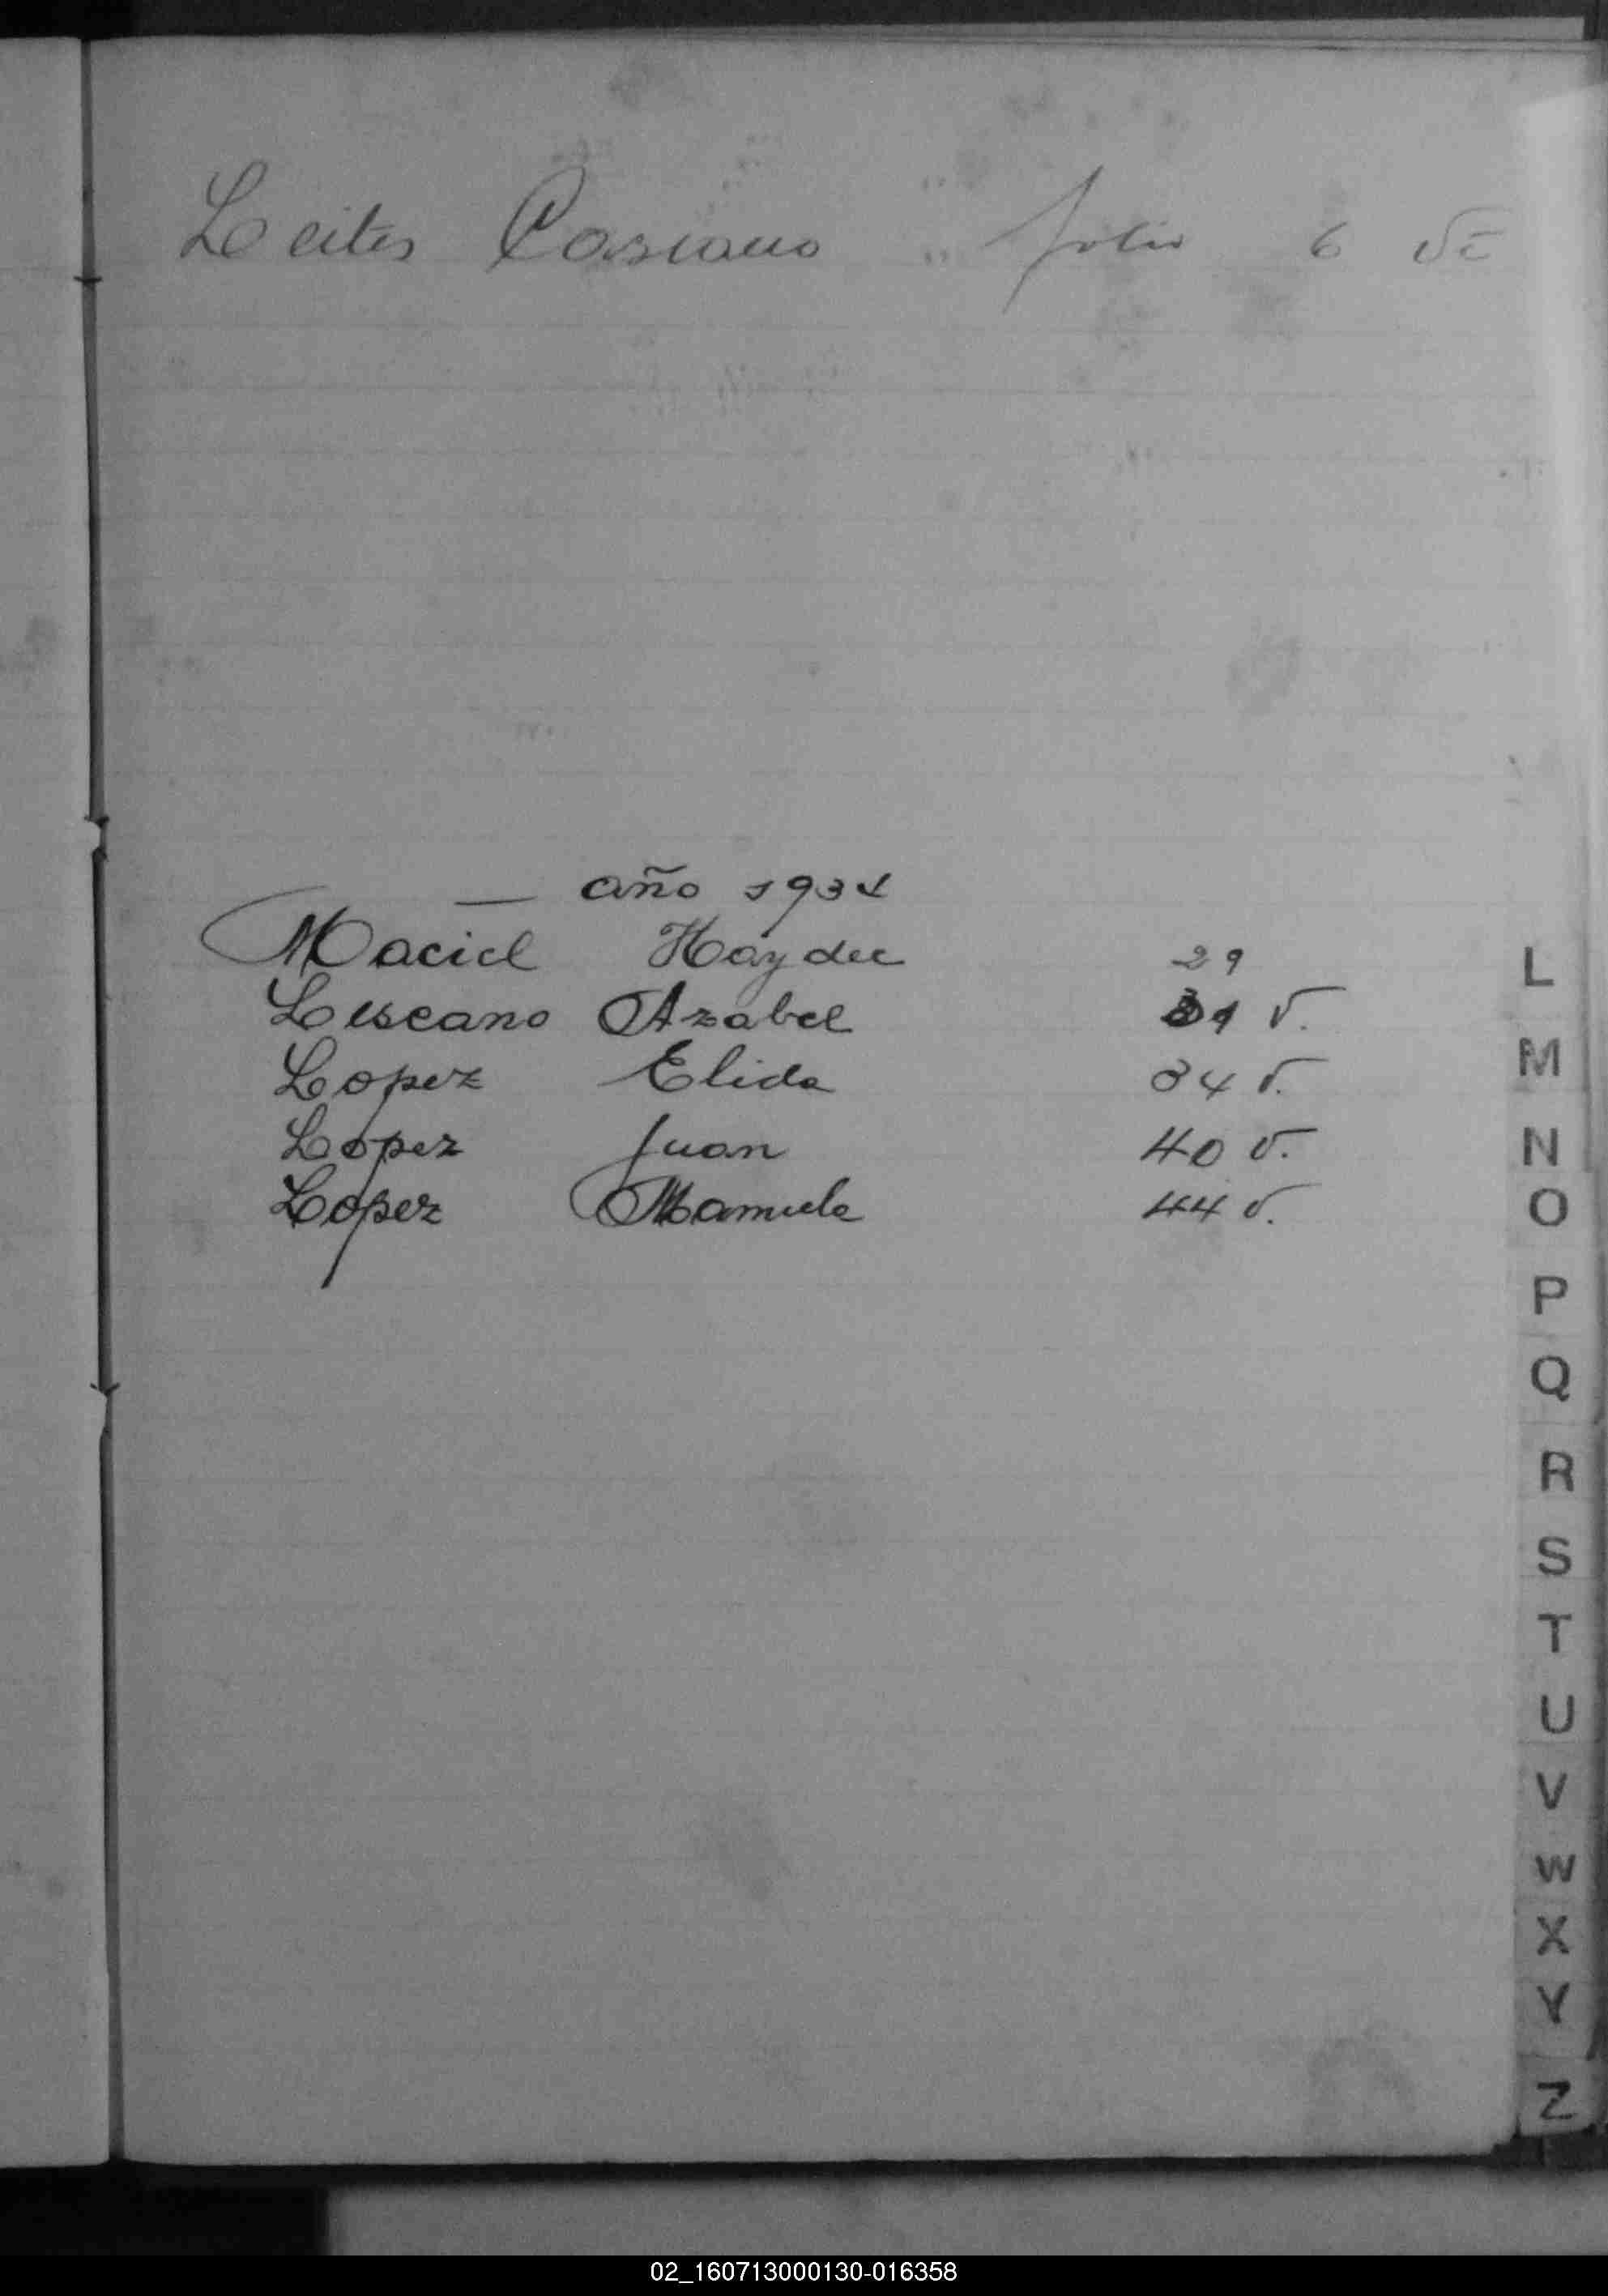 Leites Casiano " folio 6 vº
— año 1934
Maciel Haydee 29
Lescano Azabel 31 v.
Lopez Elida 34 v.
Lopez Juan 40 v.
Lopez Manuela 44 v.
L
M
N
O
P
Q
R
S
T
U
V
W
X
Y
Z
02_160713000130-016358